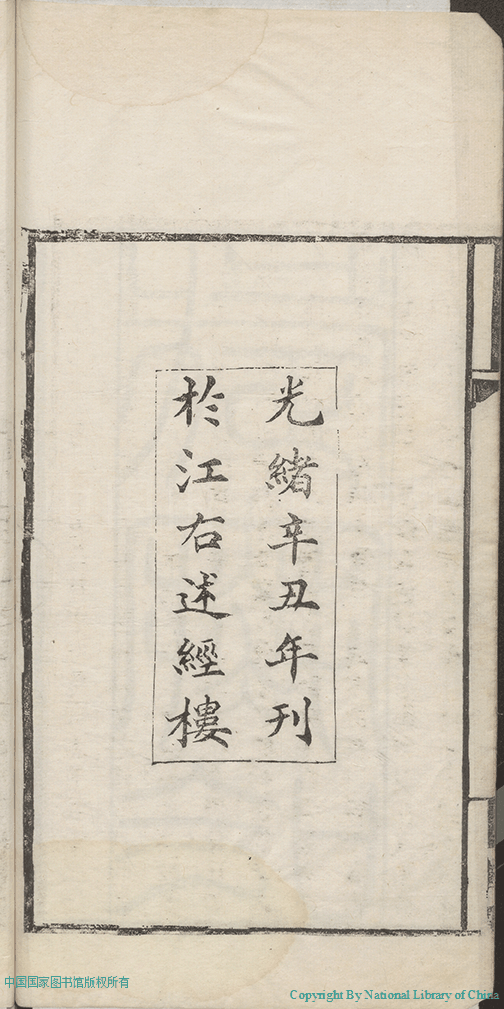 光緒辛丑年刊
於江右述經樓
中国国家图书馆版权所有
Copyright By National Library of China